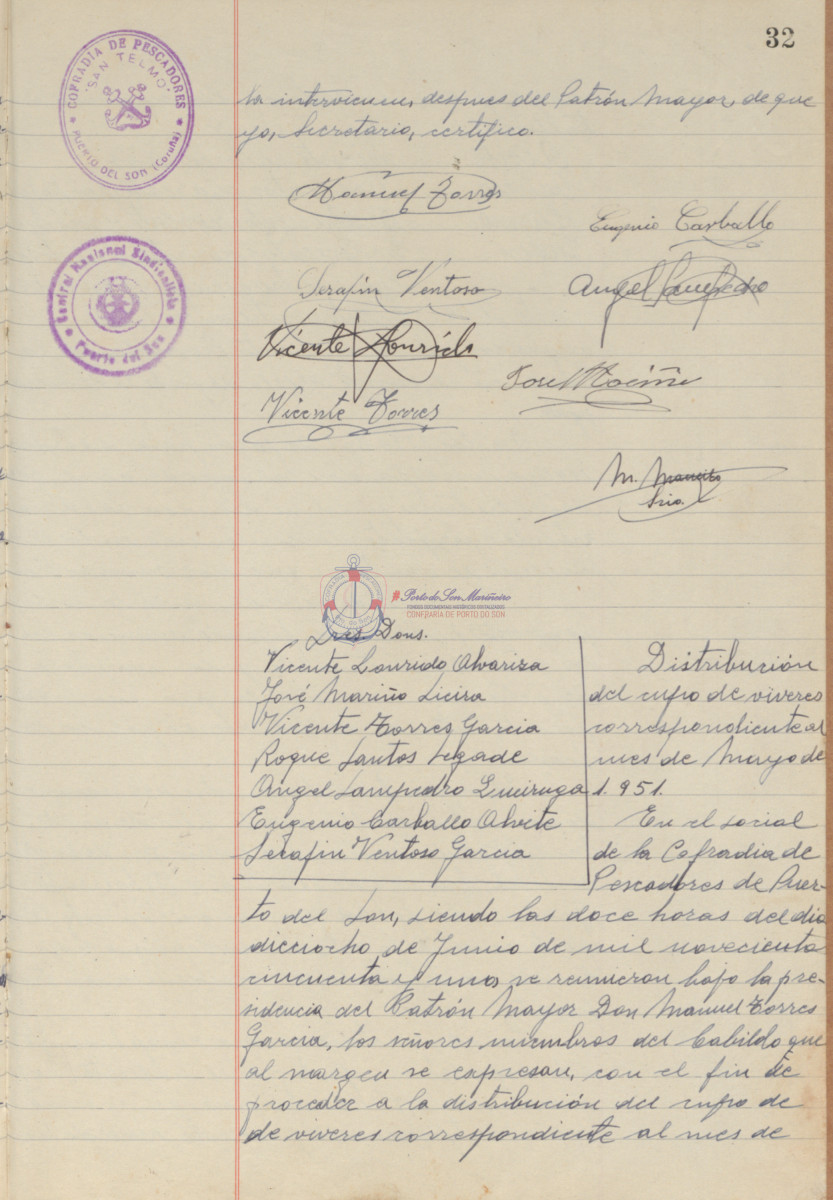 32
COFRADIA DE PESCADORES
"SAN TELMO"
PUERTO DEL SON (Coruña)
la intervienen, despues del Patrón Mayor, de que
yo, Secretario, certifico.
Manuel Torres
Eugenio Carballo
Central Nacional Sindicalista
Puerto del Son
Serafin Ventoso
Angel Sampedro
Vicente Lourido
José Mariño
Vicente Torres
M.
Srio.
Porto do Son Mariñeiro
FONDOS DOCUMENTAIS HISTÓRICOS DIXITALIZADOS
CONFRARÍA DE PORTO DO SON
Sres. Dons.
Vicente Lourido Alvariza
José Mariño Lieira
Vicente Torres Garcia
Roque Santos Legade
Angel Sampedro Queiruga
Eugenio Carballo Alvite
Serafin Ventoso Garcia
Distribución
del cupo de viveres
correspondiente al
mes de Mayo de
1.951.
En el social
de la Cofradia de
Pescadores de Puer-
to del Son, siendo las doce horas del dia
dieciocho de Junio de mil novecienta
cincuenta y uno, se reunieron bajo la pre-
sidencia del Patrón Mayor Don Manuel Torres
Garcia, los señores miembros del Cabildo que
al margen se expresan, con el fin de
proceder a la distribución del cupo de
de viveres correspondiente al mes de